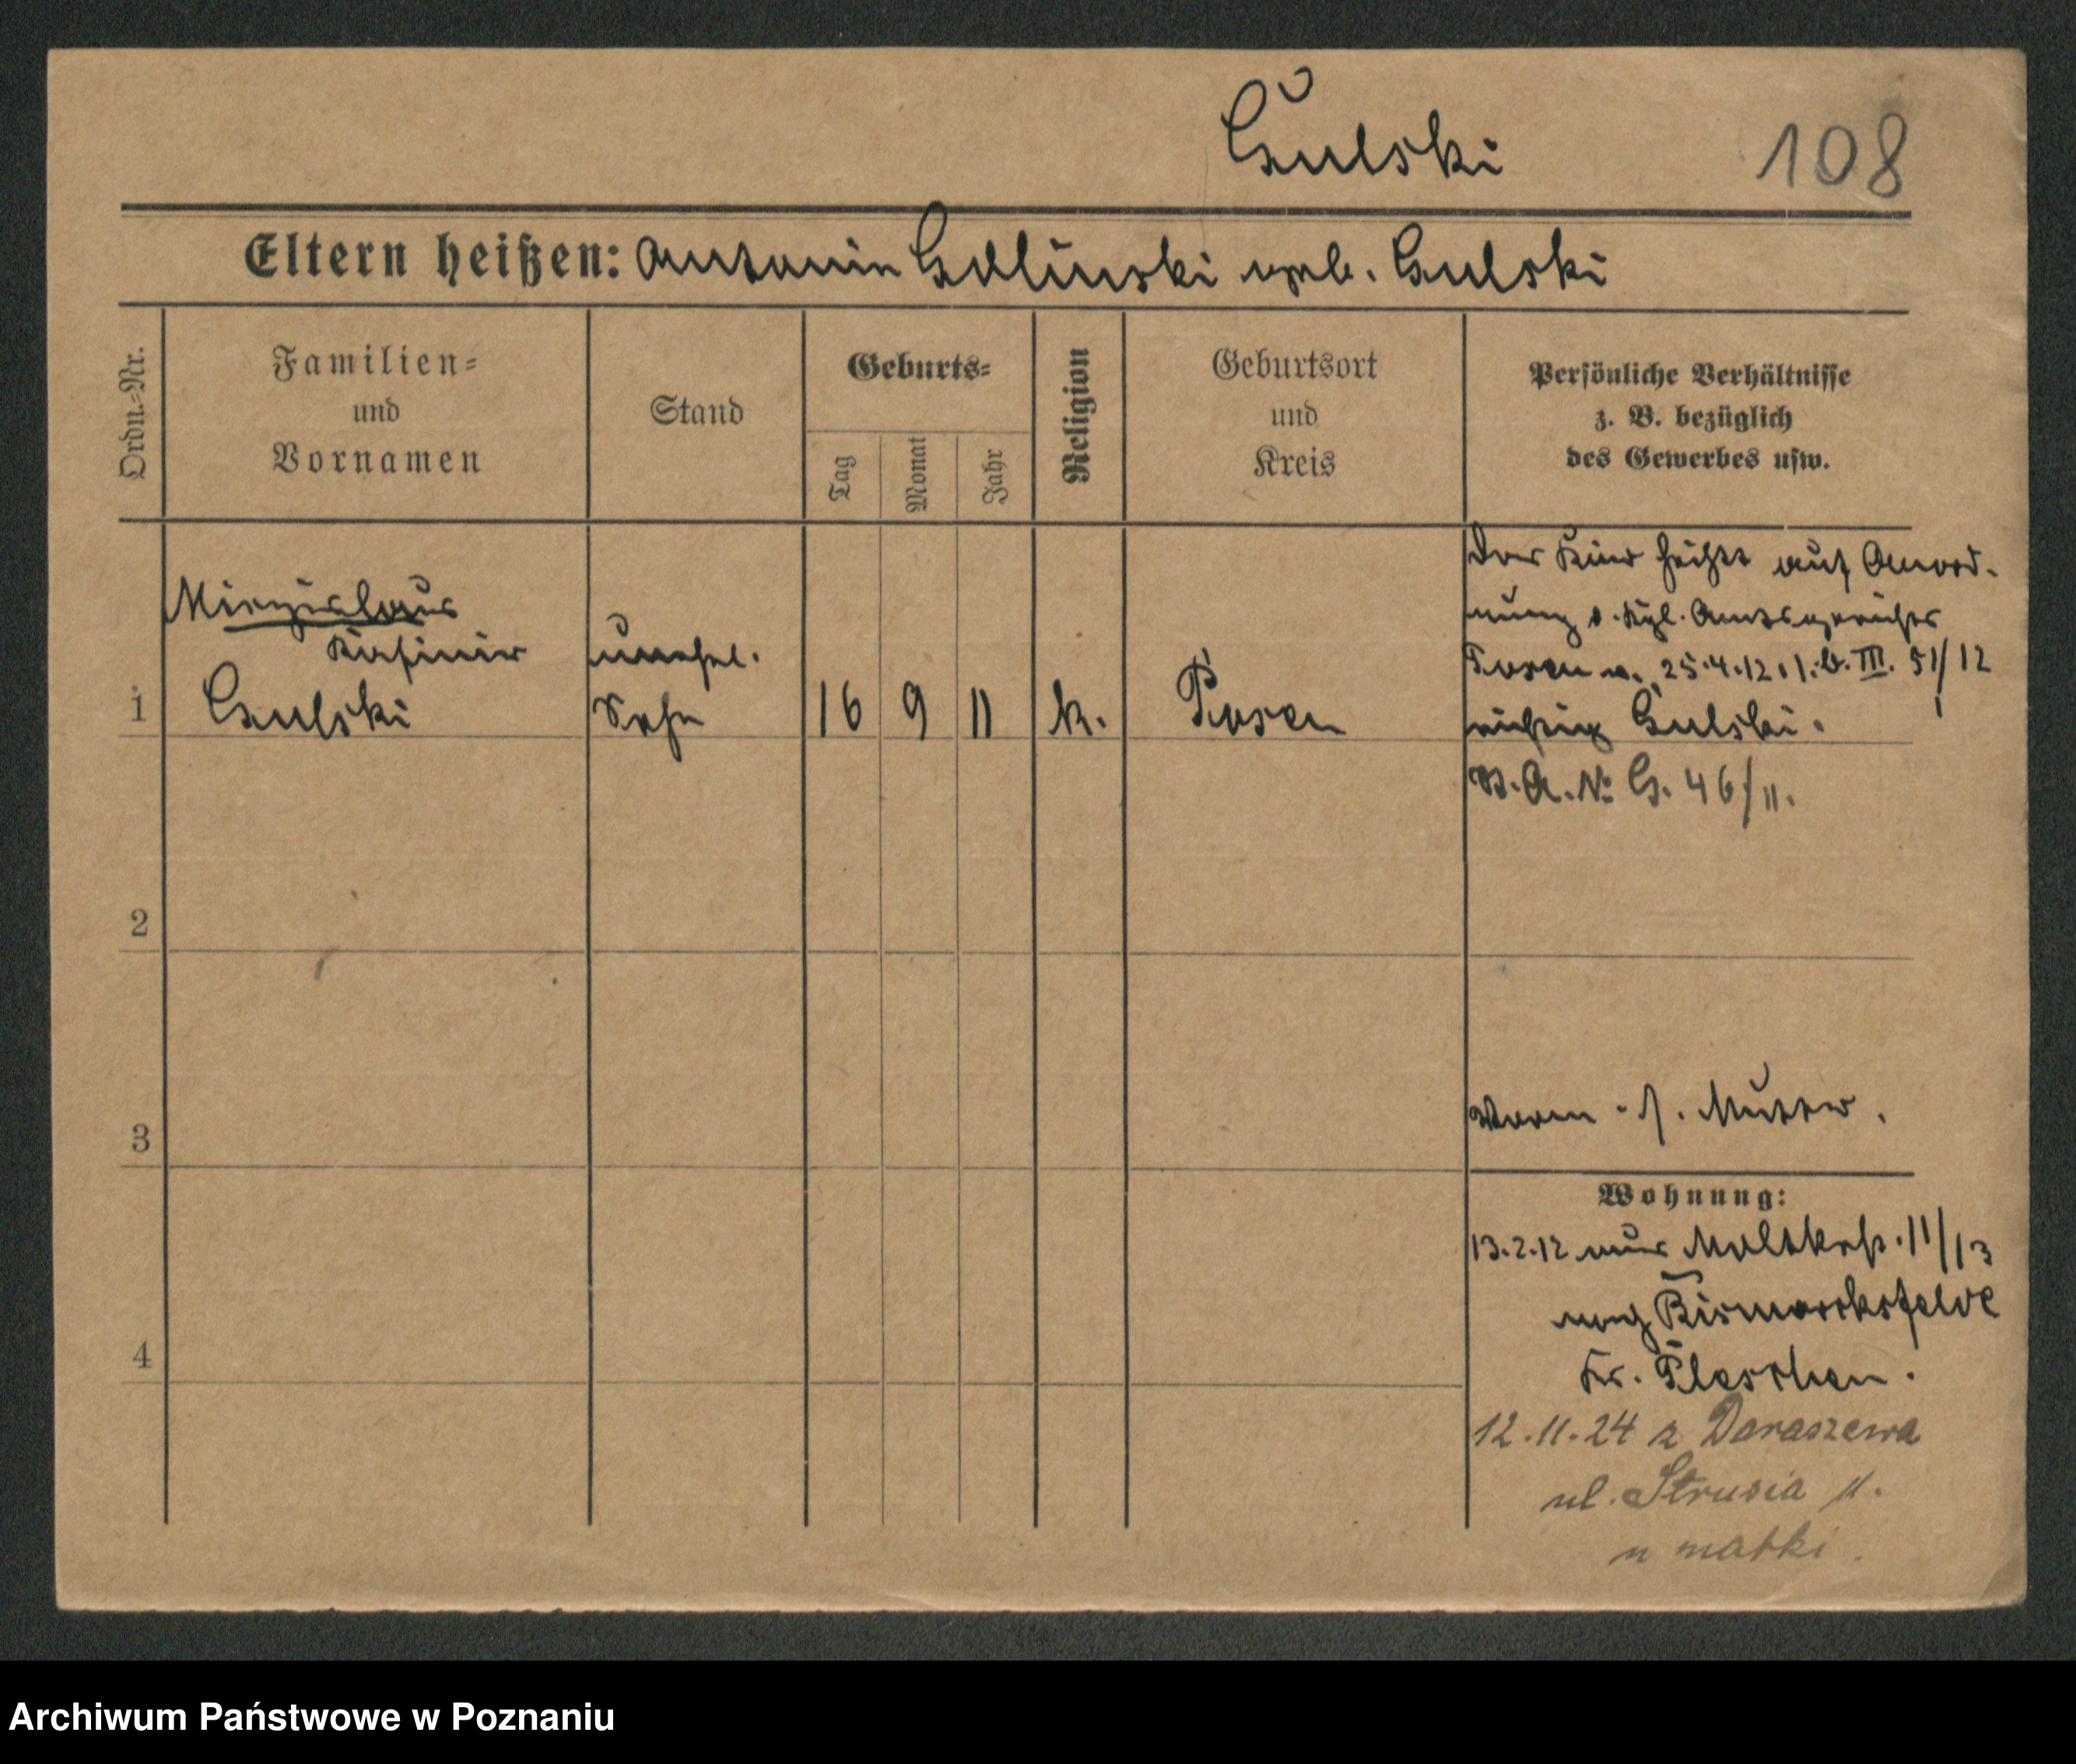 Gulski 108
Eltern heißen: Antonin Golinski geb. Gulski
Ordn.-Nr.
Familien-
und
Vornamen
Stand
Geburts-
Tag
Monat
Jahr
Religion
Geburtsort
und
Kreis
Persönliche Verhältnisse
z. B. bezüglich
des Gewerbes usw.
Miezislaus
Kasimir
1 Gulski
unehel.
Sohn
16 9 11 k. Posen
Das Kind heißt auf Anord-
nung d. Kgl. Amtsgerichts
Posen v. 25.4.12. 1. b. III. 51/12
richtig Gulski.
B. A. No G. 46/11.
2
3
Vorm. s. Mutter.
Wohnung:
13.2.12 aus Moltkestr. 11/13
nach Bismarcksfelde
Kr. Pleschen.
4
12.11.24 z Daraszewa
ul. Strusia 11.
u matki.